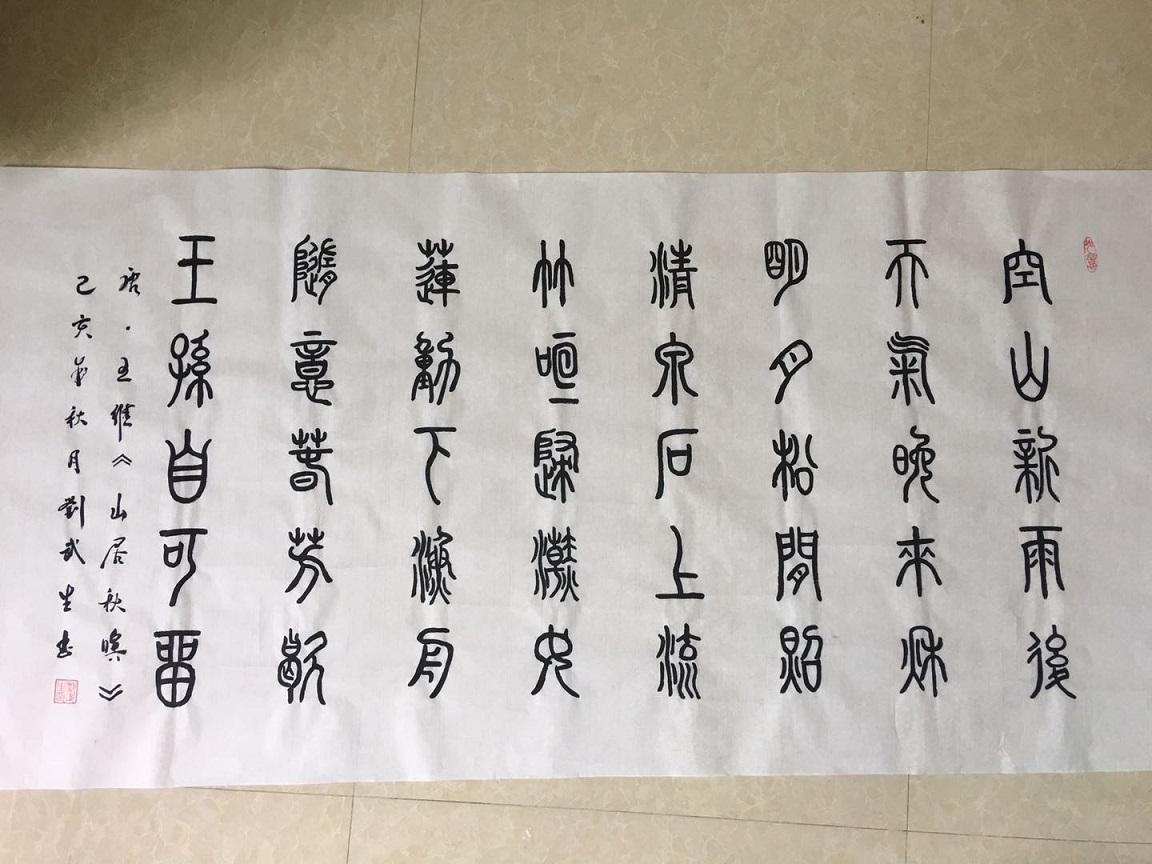 空山新雨後
天氣晚來秋
明月松間照
清泉石上流
竹喧歸浣女
蓮動下漁舟
隨意春芳歇
王孫自可留
唐·王維《山居秋暝》
己亥年秋月劉武生書